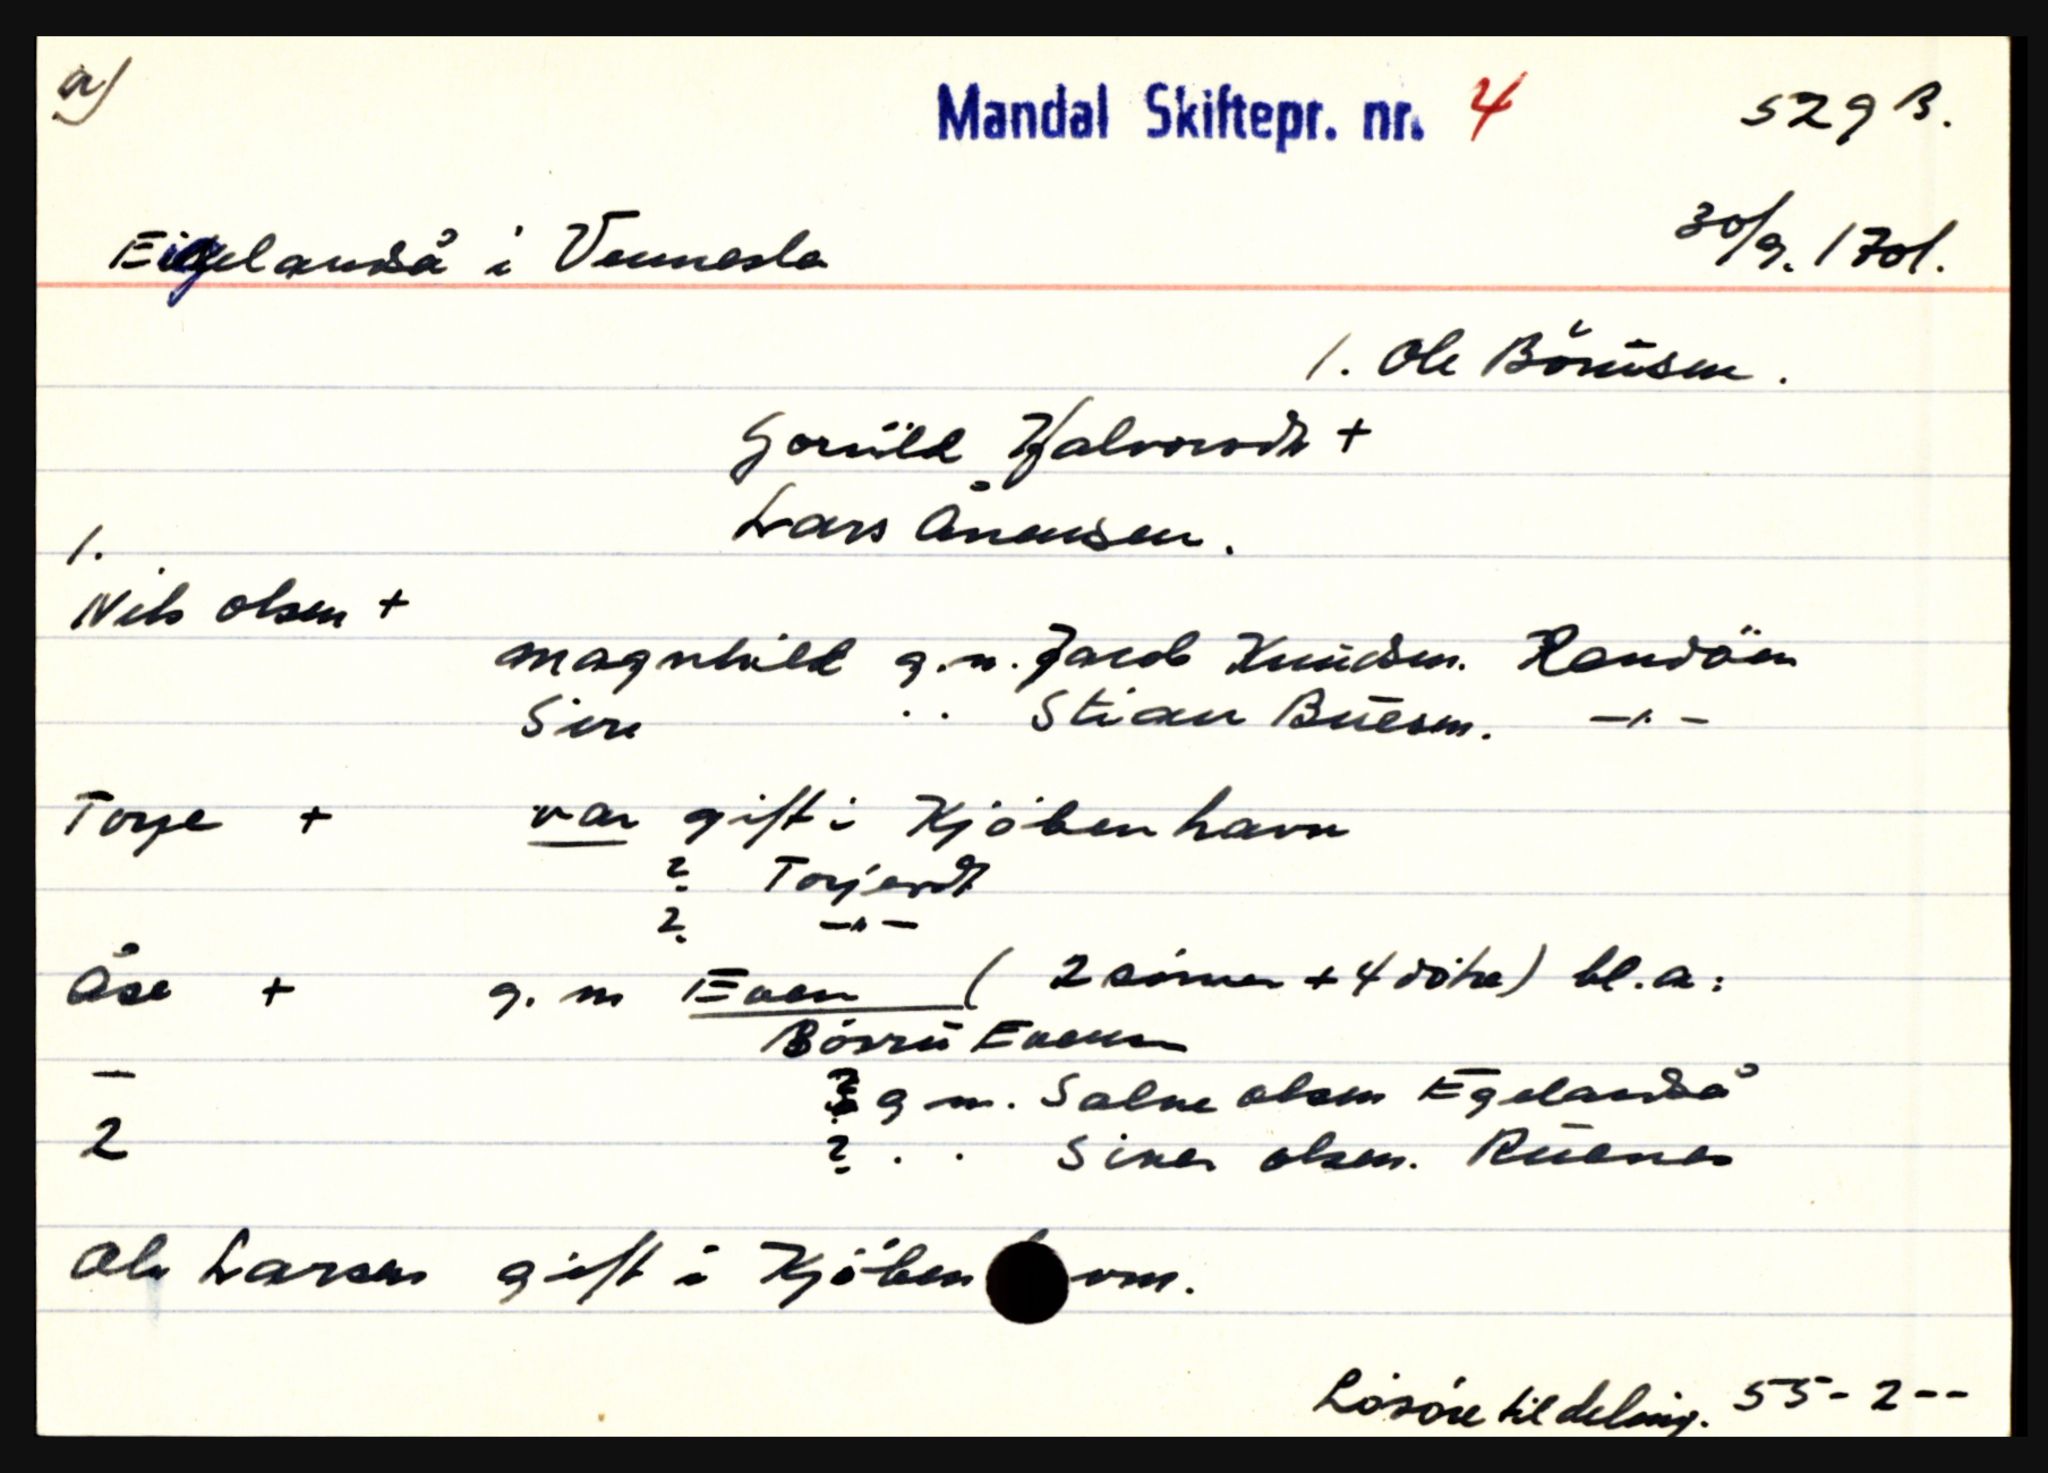 a)
Mandal Skiftepr. nr. 4
529 B.
Eigelandså i Vennesla
30/9. 1701.
1. Ole Börŭsen.
Gorŭild Halvorsdt +
Lars Ånensen.
1.
Nils olsen +
Magnhild g.m. Jacob Knŭdsen. Randöen
Siri " Stian Bŭesen. -"-
Torje + var gift i Kjöbenhavn
? Torjersdt
? -"-
Åse + g. m Even ( 2 sönner + 4 dötre) bl.a:
Börrŭ Evensen
? g m. Salve olsen Egelandså
2
? " Siver olsen. Rŭenes
Ole Larsen gift i Kjöben vn.
Lösöre til deling. 55-2--